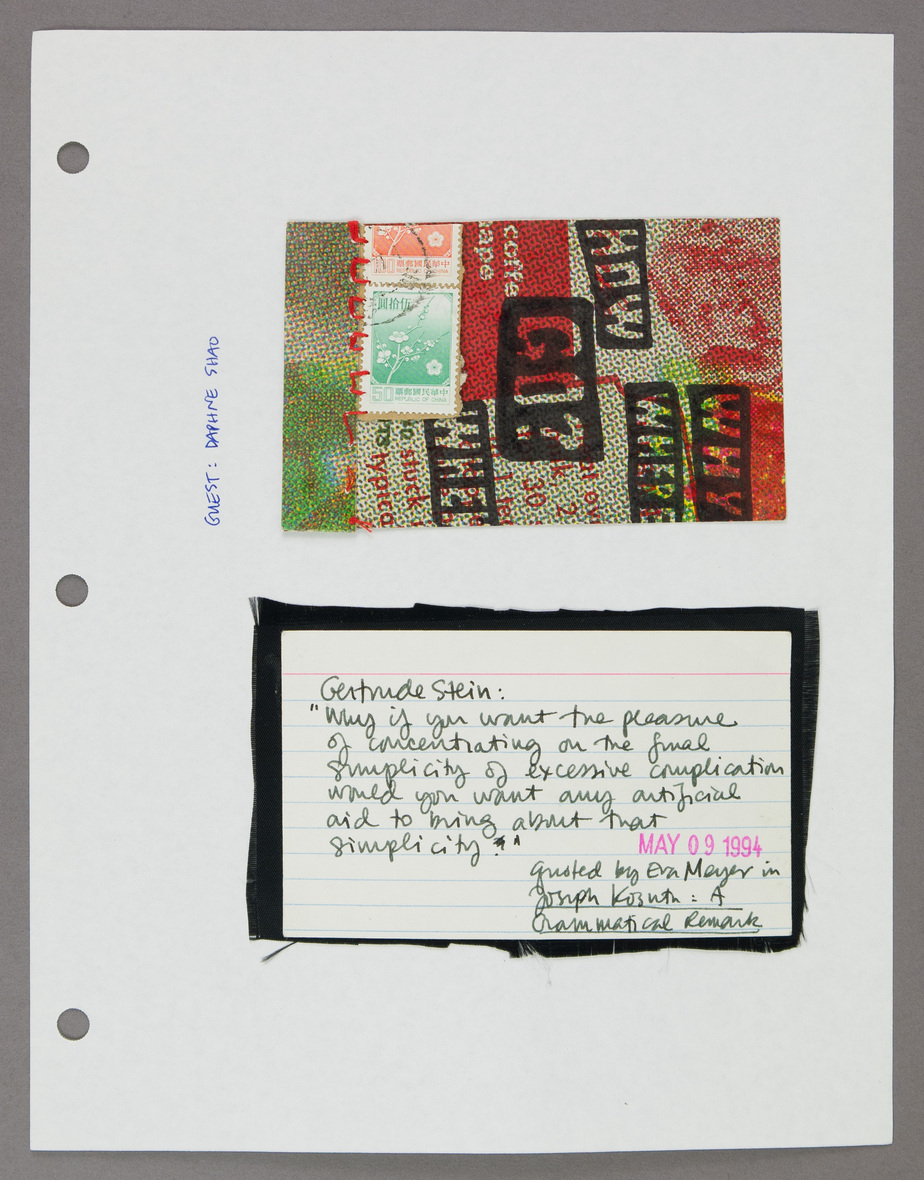 GUEST: DAPHNE SHAO
中華民國郵票
REPUBLIC OF CHINA
伍拾圓
50
中華民國郵票
REPUBLIC OF CHINA
coffe
ape
HOW
WHY
stuck
typico
30
Gertrude Stein:
"Why if you want the pleasure
of concentrating on the final
simplicity of excessive complication
would you want any artificial
aid to bring about that
simplicity?"
MAY 09 1994
quoted by Eva Meyer in
Joseph Kosuth: A
Grammatical Remark